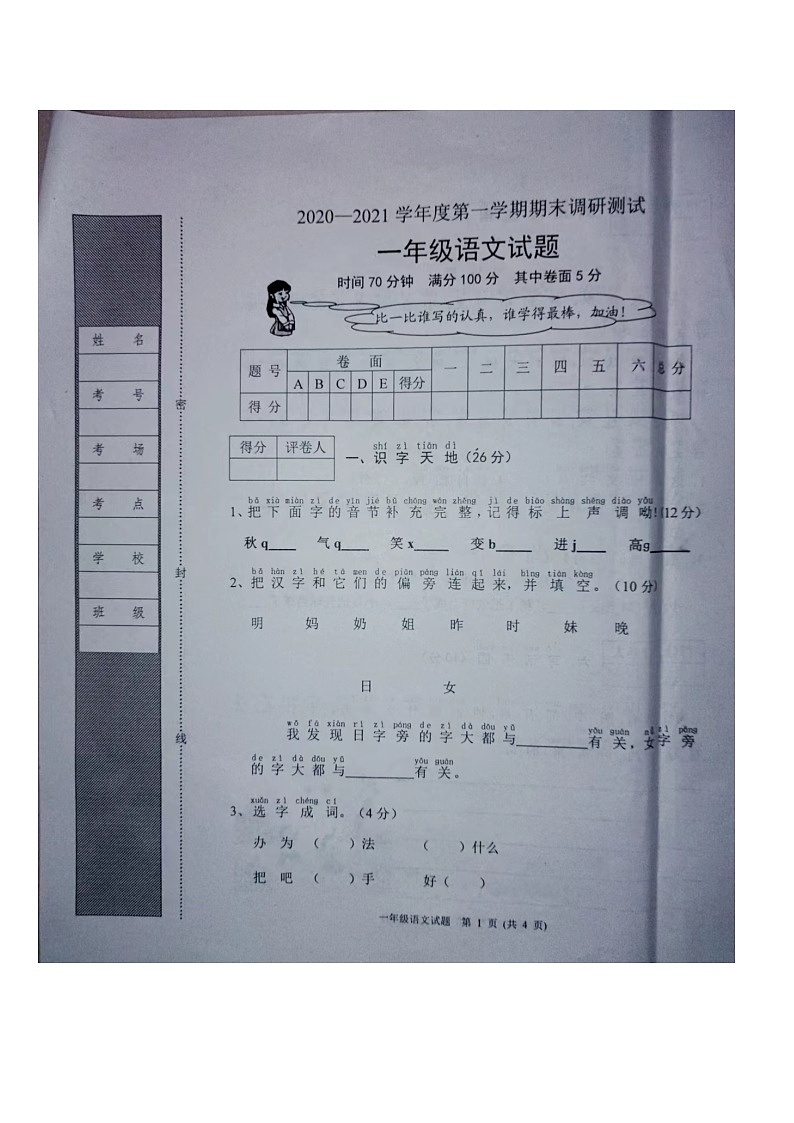 2020—2021 学年度第一学期期末调研测试
一年级语文试题
时间 70 分钟 满分 100 分 其中卷面 5 分
比一比谁写的认真，谁学得最棒，加油！
题 号 卷 面 一 二 三 四 五 六 总 分
A B C D E 得分
得 分
得分 评卷人
shí zì tiān dì
一、识 字 天 地（26 分）
bǎ xià miàn zì de yīn jié bǔ chōng wán zhěng jì de biāo shàng shēng diào yōu
1、把 下 面 字 的 音 节 补 充 完 整 ，记 得 标 上 声 调 呦！（12 分）
秋 q____ 气 q____ 笑 x_____ 变 b_____ 进 j____ 高g______
bǎ hàn zì hé tā men de piān páng lián qǐ lái bìng tián kòng
2、把 汉 字 和 它 们 的 偏 旁 连 起 来，并 填 空 。（10 分）
明 妈 奶 姐 昨 时 妹 晚
日 女
wǒ fā xiàn rì zì páng de zì dà dōu yǔ yǒu guān nǚ zì páng
我 发 现 日 字 旁 的 字 大 都 与__________有 关 ，女 字 旁
de zì dà dōu yǔ yǒu guān
的 字 大 都 与_________有 关 。
xuǎn zì chéng cí
3、选 字 成 词。（4 分）
办 为 （ ）法 （ ）什么
把 吧 （ ）手 好（ ）
一年级语文试题 第 1 页 (共 4 页)
姓 名
考 号
考 场
考 点
学 校
班 级
密
封
线